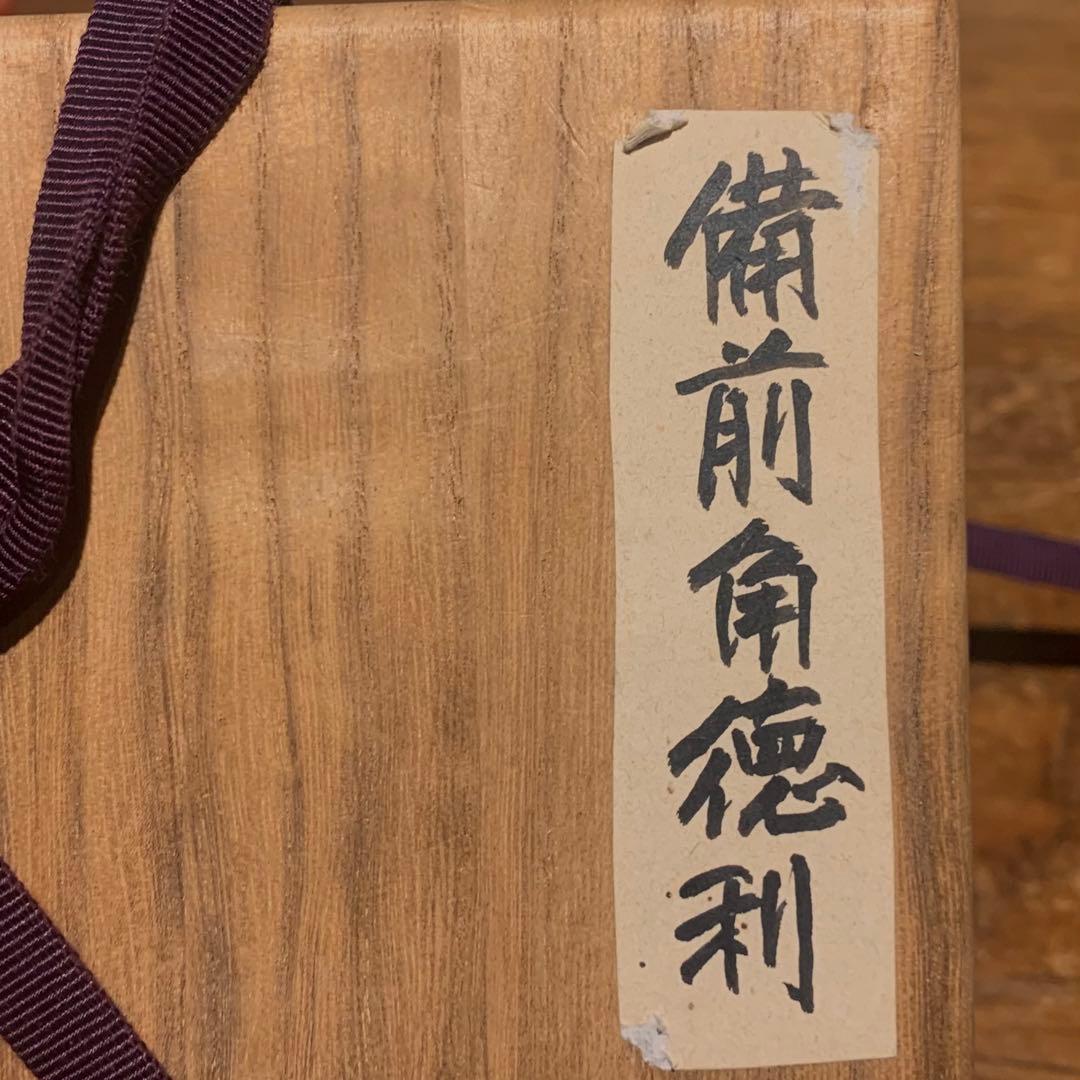 備前角徳利